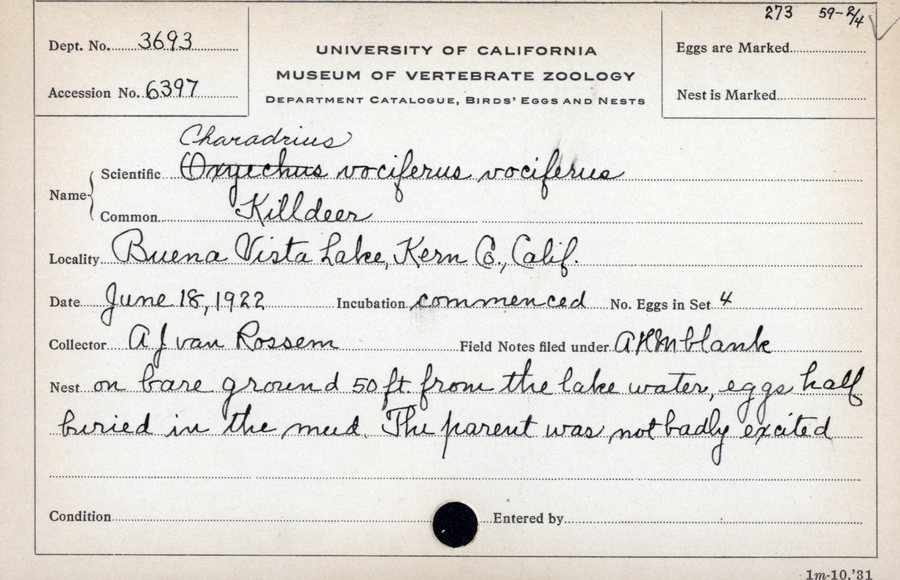 273 59-2/4
Dept. No. 3693
Accession No. 6397
UNIVERSITY OF CALIFORNIA
MUSEUM OF VERTEBRATE ZOOLOGY
DEPARTMENT CATALOGUE, BIRDS' EGGS AND NESTS
Eggs are Marked
Nest is Marked
Charadrius
Name Scientific Oxyechus vociferus vociferus
Common Killdeer
Locality Buena Vista Lake, Kern Co., Calif.
Date June 18, 1922 Incubation commenced No. Eggs in Set 4
Collector A J van Rossem Field Notes filed under AHM blank
Nest on bare ground 50 ft. from the lake water, eggs half
buried in the mud. The parent was not badly excited
Condition Entered by
1m-10,'31